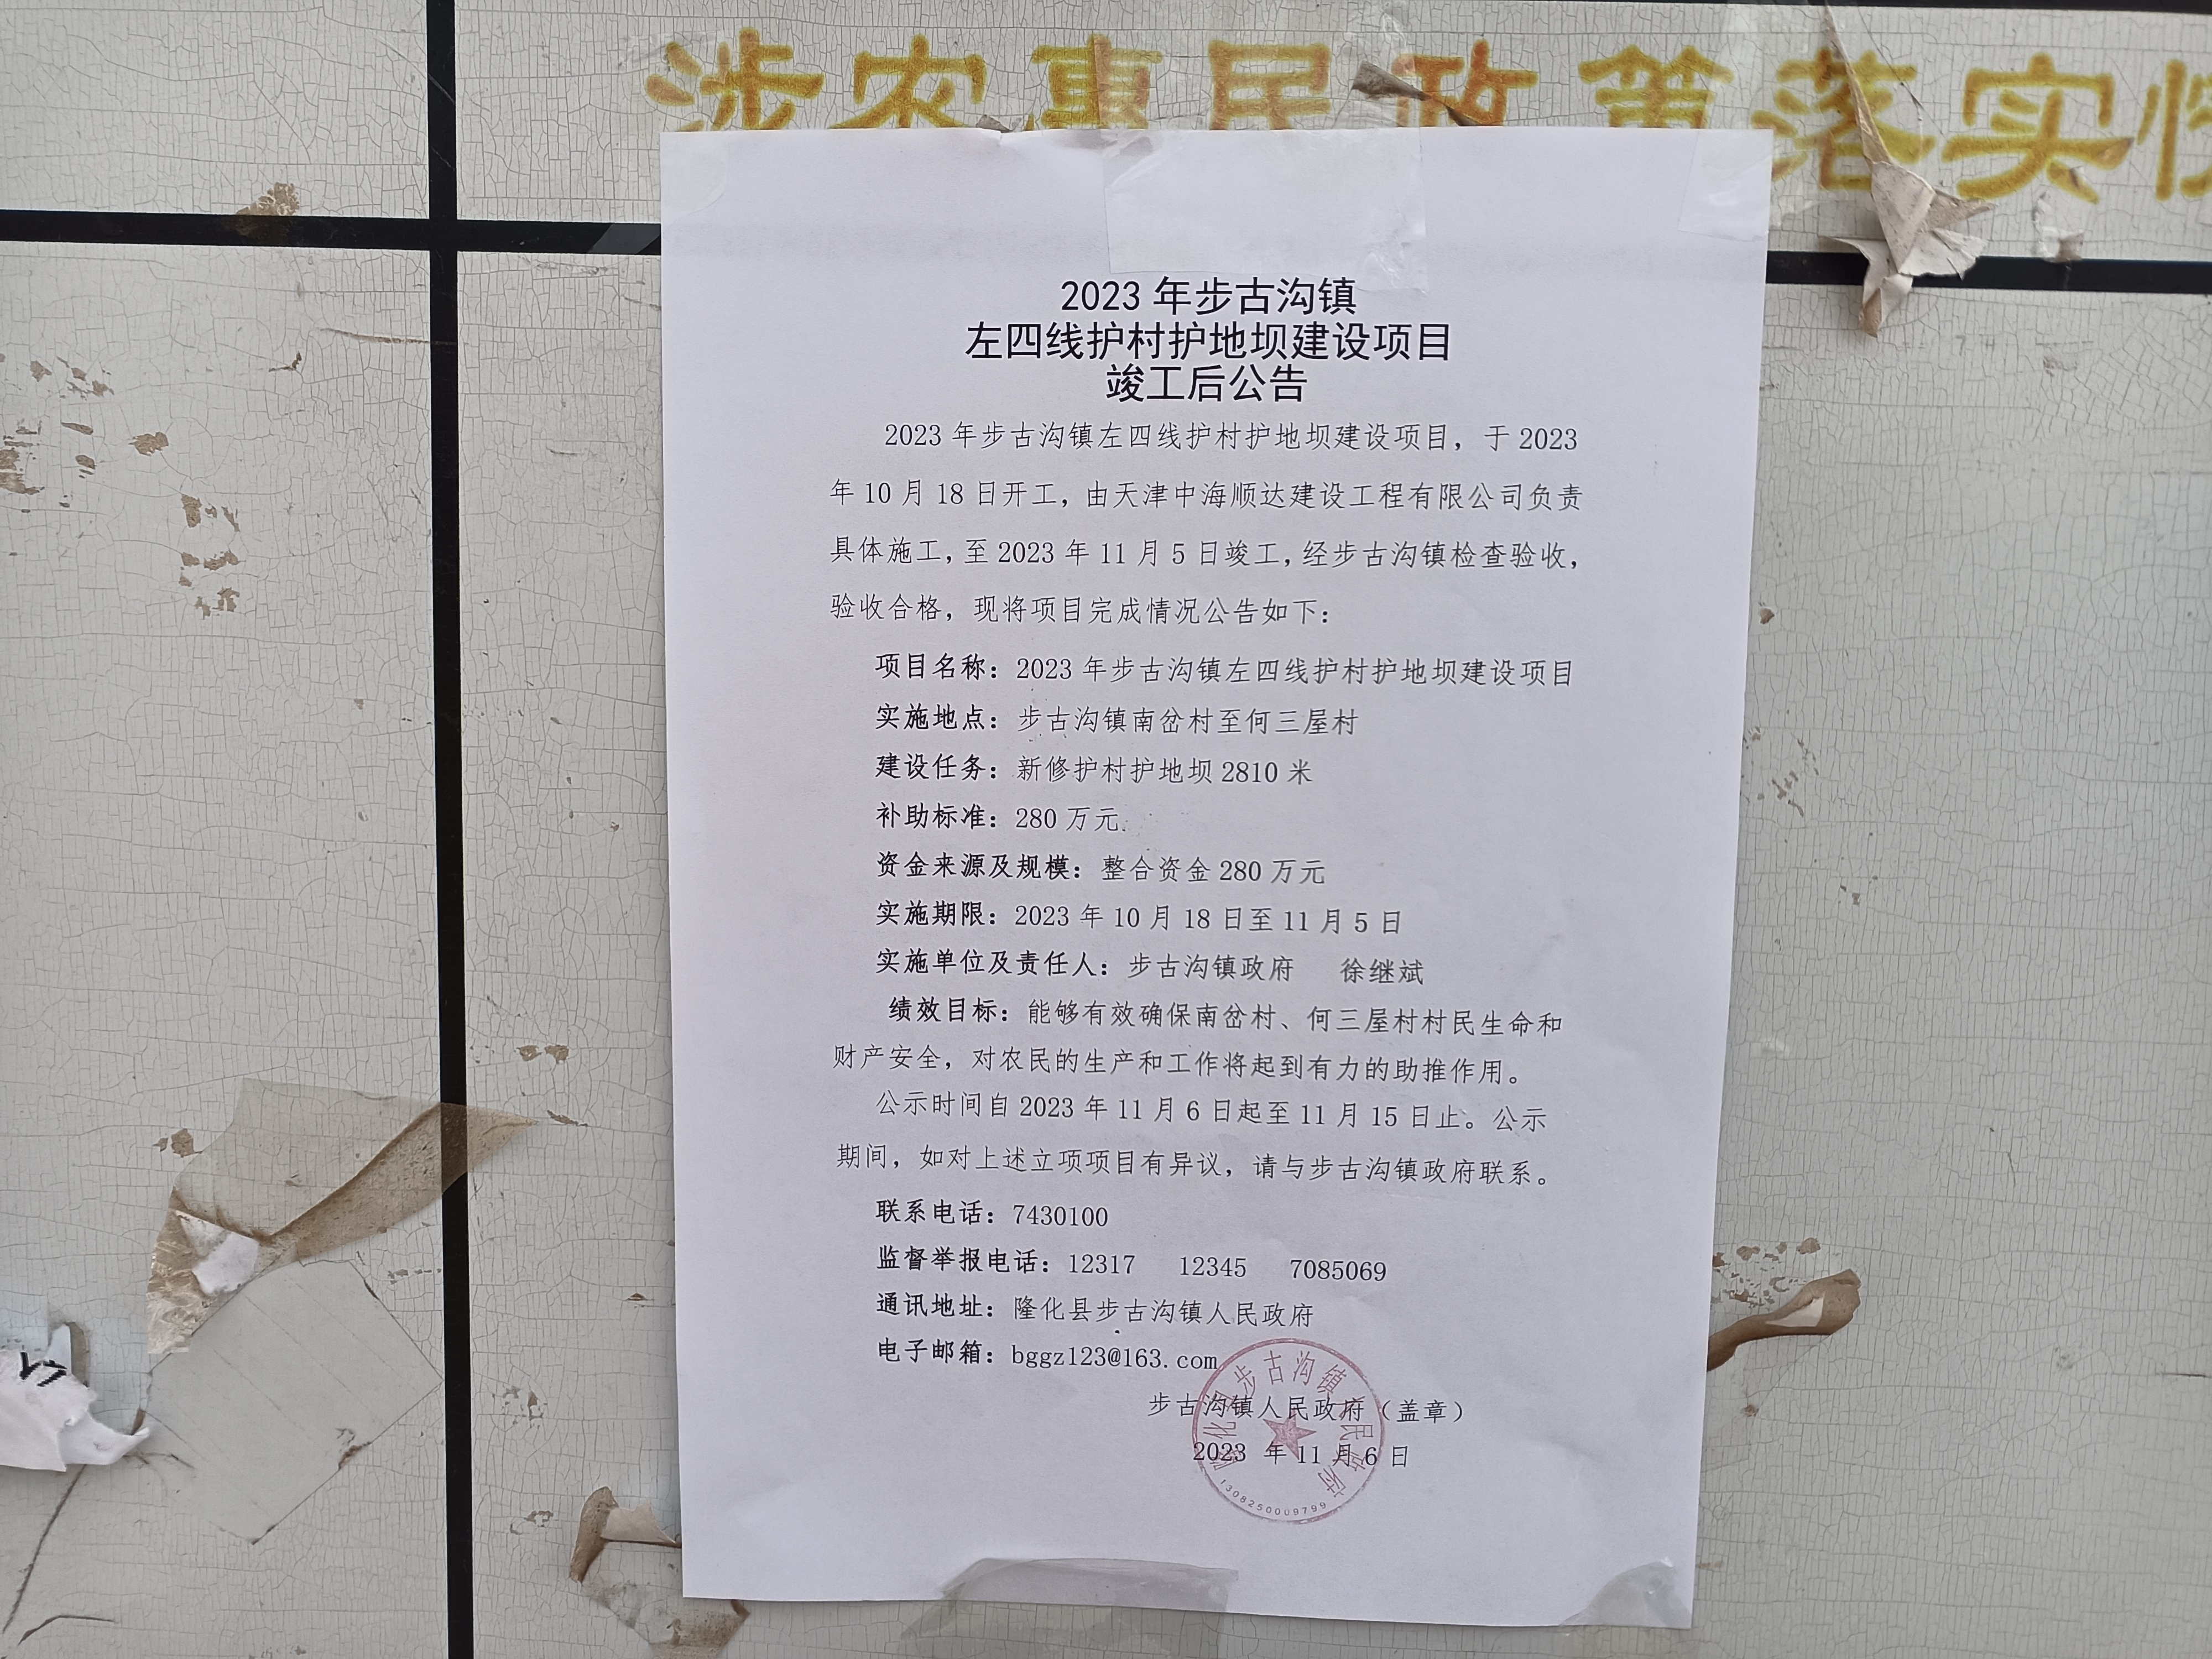 涉农惠民政策落实情
2023 年步古沟镇
左四线护村护地坝建设项目
竣工后公告
2023 年步古沟镇左四线护村护地坝建设项目，于 2023
年 10 月 18 日开工，由天津中海顺达建设工程有限公司负责
具体施工，至 2023 年 11 月 5 日竣工，经步古沟镇检查验收，
验收合格，现将项目完成情况公告如下：
项目名称：2023 年步古沟镇左四线护村护地坝建设项目
实施地点：步古沟镇南岔村至何三屋村
建设任务：新修护村护地坝 2810 米
补助标准：280 万元
资金来源及规模：整合资金 280 万元
实施期限：2023 年 10 月 18 日至 11 月 5 日
实施单位及责任人：步古沟镇政府 徐继斌
绩效目标：能够有效确保南岔村、何三屋村村民生命和
财产安全，对农民的生产和工作将起到有力的助推作用。
公示时间自 2023 年 11 月 6 日起至 11 月 15 日止。公示
期间，如对上述立项项目有异议，请与步古沟镇政府联系。
联系电话：7430100
监督举报电话：12317 12345 7085069
通讯地址：隆化县步古沟镇人民政府
电子邮箱：bggz123@163.com
步古沟镇人民政府（盖章）
2023 年 11 月 6 日
隆化县步古沟镇人民政府
1308250009799